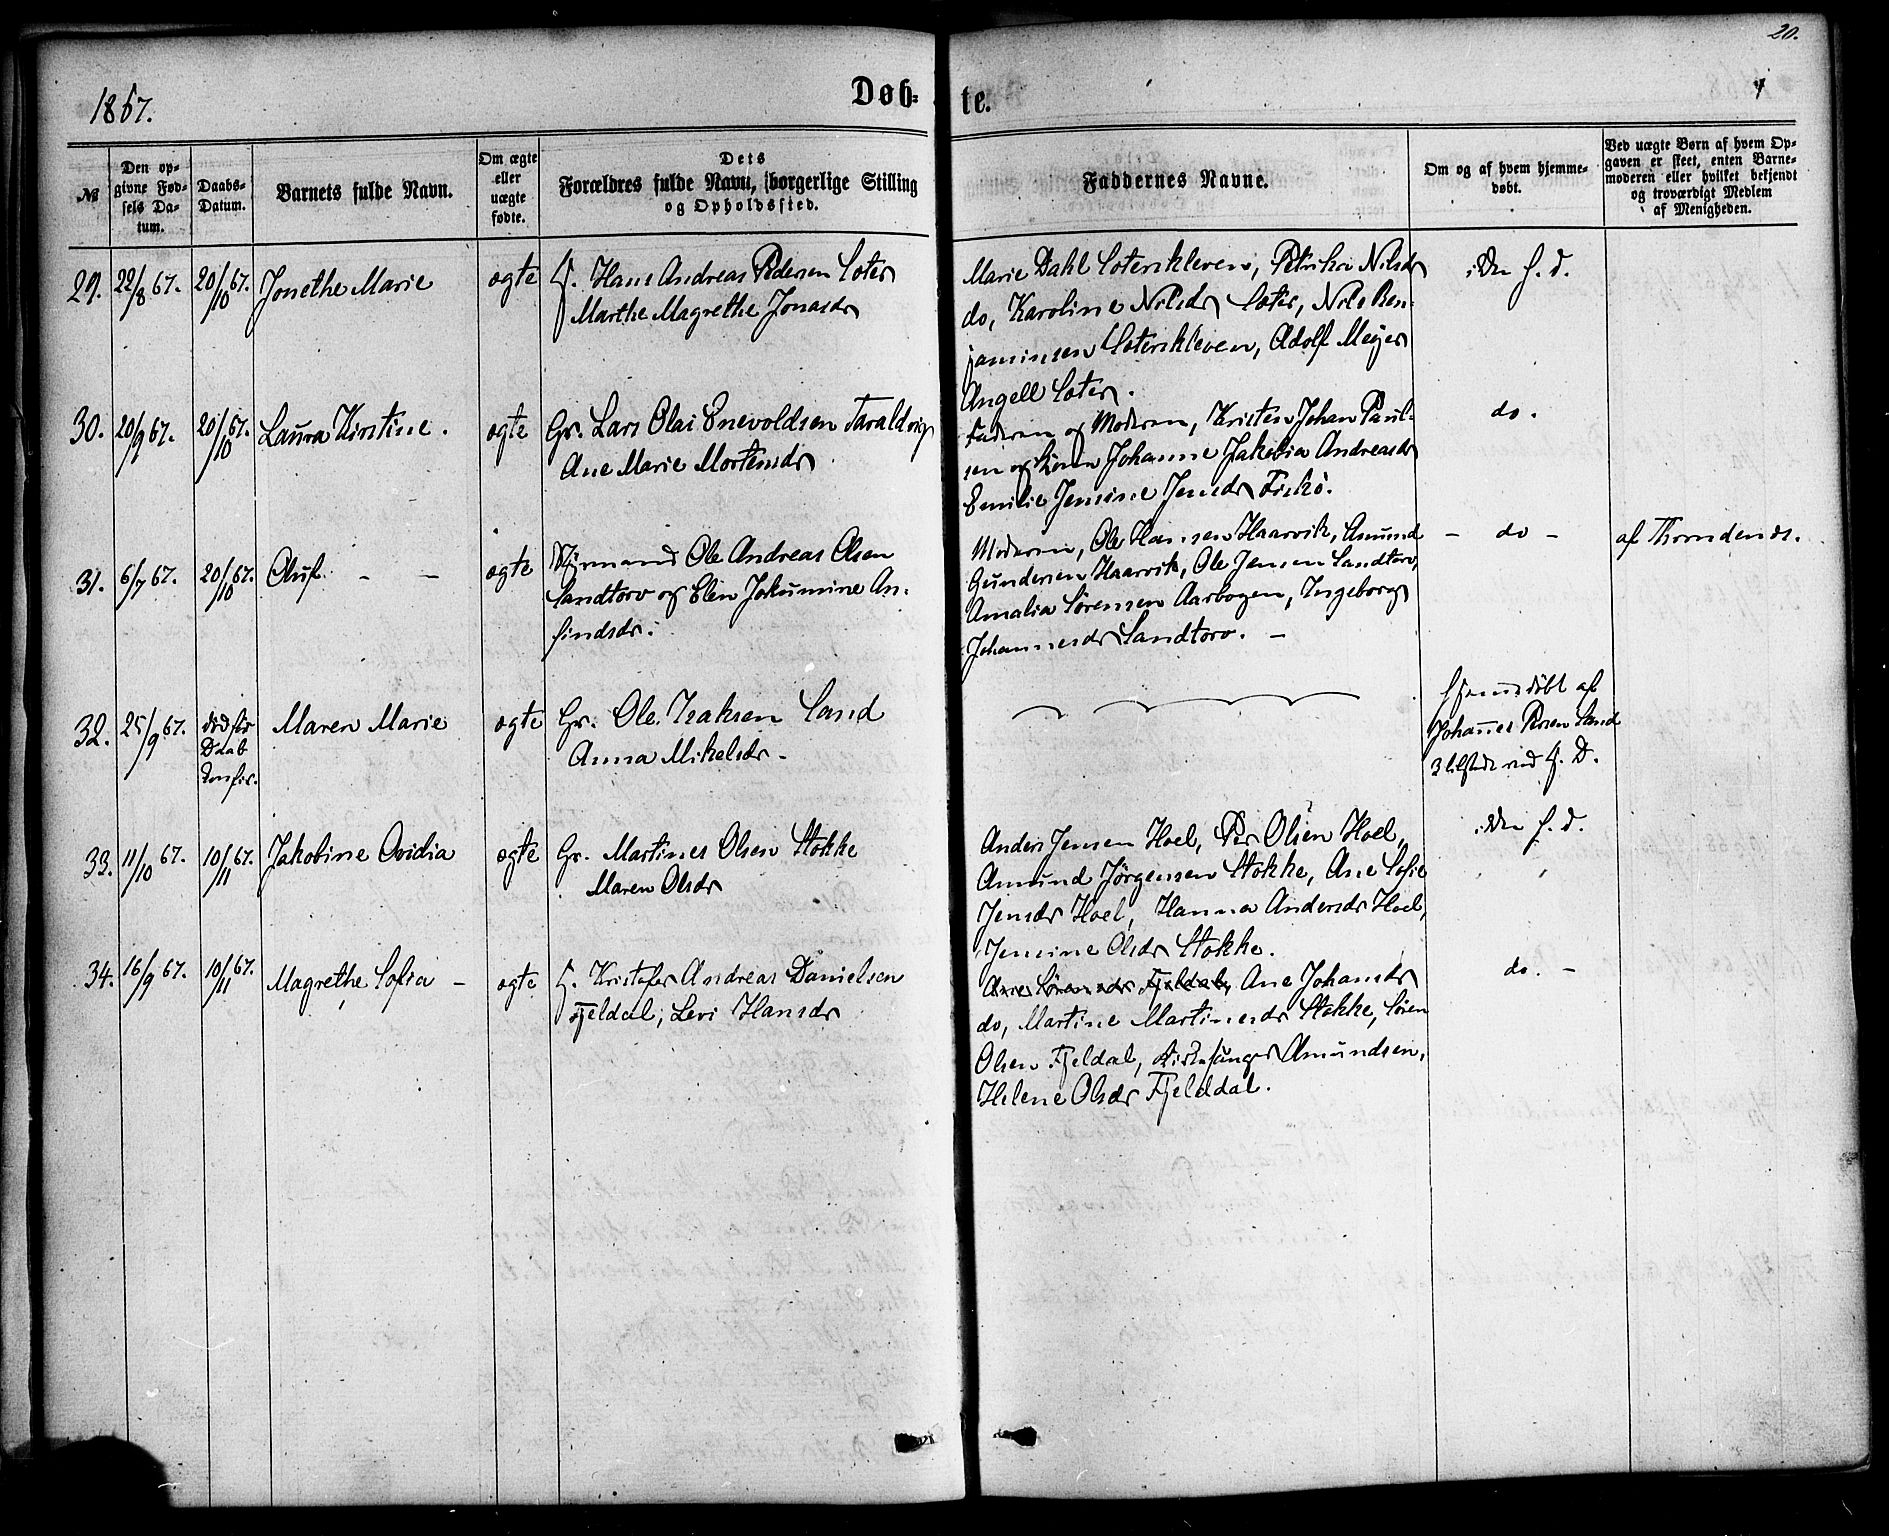 20.
1867.
Døb-
te.
№
Den op-
givne Fød-
sels Da-
tum.
Daabs-
Datum.
Barnets fulde Navn.
Om ægte
eller
uægte
fødte.
Dets
Forældres fulde Navn, borgerlige Stilling
og Opholdssted.
Faddernes Navne.
Om og af hvem hjemme-
døbt.
Ved uægte Børn af hvem Op-
gaven er skeet, enten Barne-
moderen eller hvilket bekjendt
og troværdigt Medlem
af Menigheden.
29. 22/8 67. 20/10 67. Jonethe Marie ægte
Hans Andreas Pedersen Soter
Marthe Magrethe Jonasdr
Marie Dahl Soterkleven, Petrika Nilsdr
do, Karoline Nilsdr Soter, Nils Ben-
jaminsen Soterkleven, Adolf Meyer
Angell Soter.
i Den f. d.
30. 20/9 67. 20/10 67. Laura Kirstine. ægte
Gr. Lars Olai Enevoldsen Taraldvig
Ane Marie Mortensdr
Faderen og Moderen, Kristen Johan Paul-
sen og Kone Johanne Jakobia Andreasdr
Emilie Jensine Jensdr Fiskø.
do.
31. 6/7 67. 20/10 67. Oluf - - ægte
Styrmand Ole Andreas Olsen
Sandtorv og Elen Jakumine An-
findsdr.
Moderen, Ole Hansen Haarvik, Amund
Gundersen Haarvik, Ole Jensen Sandtorv,
Amalia Sørensen Aarbogen, Ingeborg
Johannesdr Sandtorv. -
- do -
af Throndenes.
32. 25/9 67. død før
Daab
Maren Marie ægte
Gr. Ole Isaksen Sand
Anna Mikelsdr -
hjemedøbt af
Johañes Persen Sand
3 tilstede ved H. D.
33. 11/10 67. 10/11 67. Jakobine Ovidia ægte
Gr. Martines Olsen Stokke
Maren Olsdr
Anders Jensen Hoel, Per Olsen Hoel,
Amund Jørgensen Stokke, Ane Sofie
Jensdr Hoel, Hanna Andersdr Hoel,
Jensine Olsdr Stokke.
i Den f. d.
34. 16/9 67. 10/11 67. Magrethe Sofia - ægte
Kristofer Andreas Danielsen
Fjeldal, Levi Hansdr
Ane Sørensdr Fjeldal, Ane Johansdr
do, Martine Martinesdr Stokke, Søren
Olsen Fjeldal, Kirkesanger Amundsen,
Helene Olsdr Fjelddal.
do. -